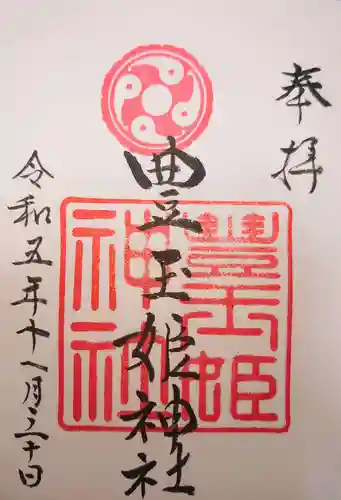 奉拝
豊玉姫神社
豊玉姫神社
令和五年十一月三十日